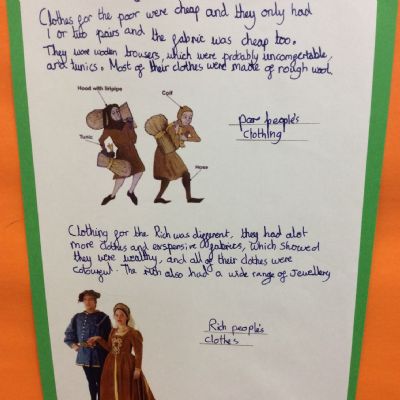 Clothes for the poor were cheap and they only had
1 or two pairs and the fabric was cheap too.
They wore woolen trousers, which were probably uncomfortable,
and tunics. Most of their clothes were made of rough wool.
Hood with liripipe
Coif
Tunic
Hose
poor people's
clothing
Clothing for the Rich was different. they had alot
more clothes and exspensive fabrics, which showed
they were wealthy, and all of their clothes were
colourful. The rich also had a wide range of Jewellery
Rich people's
clothes